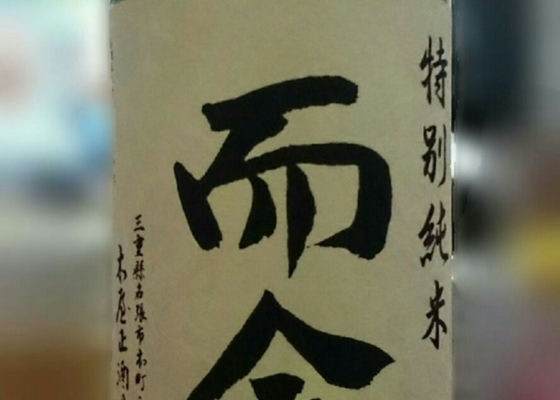 特別純米
而今
三重縣名張市本町
木屋正酒